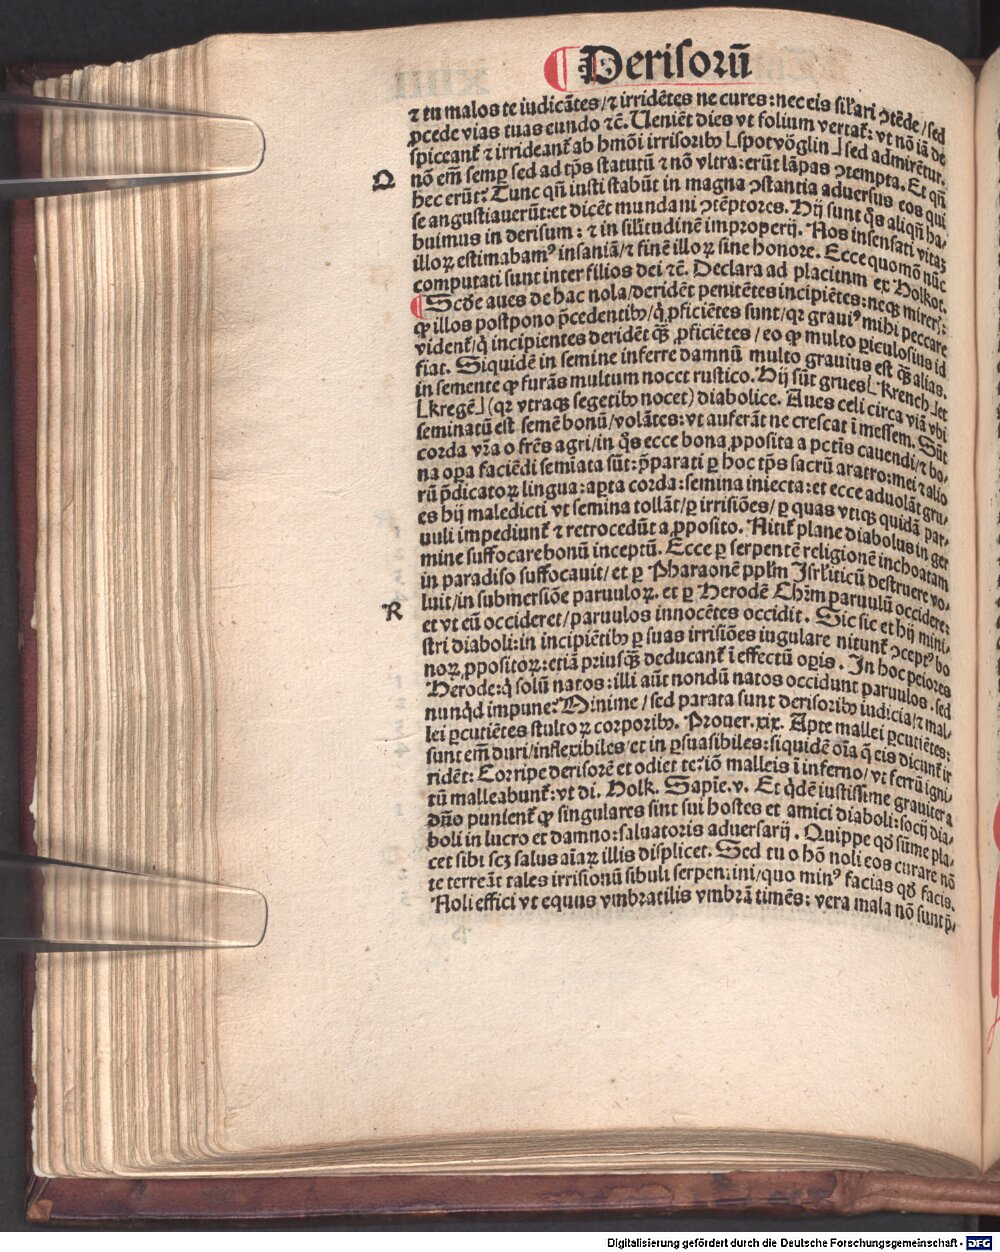 ¶ Derisorū
⁊ tu malos te iudicātes/⁊ irridētes ne cures: nec eis siłari ↄtēde/sed
ꝓcede vias tuas eundo ⁊c̄. Ueniēt dies vt folium vertat̄: vt nō iā de
spiceant̄ ⁊ irrideant̄ ab hmōi irrisoribꝰ ⌊spotvöglin⌋ sed admirētur.
Q
nō em̄ semꝑ sed ad tp̄s statutū ⁊ nō vltra: erūt lāpas ↄtempta. Et qn̄
hec erūt? Tunc qn̄ iusti stabūt in magna ↄstantia aduersus eos qui
se angustiauerūt: et dicēt mundani ↄtēptores. Hij sunt q̄s aliqn̄ ha/
buimus in derisum: ⁊ in siłitudinē improperij. Nos insensati vitaꝫ
illoꝝ estimabamꝰ insaniā/⁊ finē illoꝝ sine honore. Ecce quomō nūc
computati sunt inter filios dei ⁊c̄. Declara ad placitum ex Holkot.
¶ Scd̄e aues de hac nola/deridēt penitētes incipiētes: neqꝫ mireris:
ꝙ illos postpono p̄cedentibꝰ/q̇ ꝓficiētes sunt/qꝛ grauiꝰ mihi peccare
vident̄/q̇ incipientes deridēt qꝫ̄ ꝓficiētes/eo ꝙ multo ꝑiculosius id
fiat. Siquidē in semine inferre damnū multo grauius est qꝫ̄ alias.
in semente ꝙ furās multum nocet rustico. Hij sūt grues ⌊krench⌋et
⌊kregē⌋(qꝛ vtraqꝫ segetibꝰ nocet) diabolice. Aues celi circa viā vbi
seminatū est semē bonū/volātes: vt auferāt ne crescat ī messem. Sūt
corda vr̄a o fr̄es agri/in q̄s ecce bona ꝓposita a pctīs cauendi/⁊ bo/
na oꝑa faciēdi semīata sūt: p̄parati ꝑ hoc tp̄s sacrū aratro: mei ⁊ alio
rū p̄dicatoꝝ lingua: aꝑta corda: semina iniecta: et ecce aduolāt gru/
es hij maledicti vt semina tollāt/ꝑ irrisiōes/ꝑ quas vtiqꝫ quidā par/
uuli impediunt̄ ⁊ retrocedūt a ꝓposito. Nitit̄ plane diabolus in ger
mine suffocare bonū inceptū. Ecce ꝑ serpentē religionē inchoatam
in paradiso suffocauit/et ꝑ Pharaonē ppłm Isrłiticū destruere vo/
R
luit/in submersiōe paruuloꝝ. et ꝑ Herodē Chr̄m paruulū occidere:
et vt eū occideret/paruulos innocētes occidit. Sic sic et hij mini/
stri diaboli: in incipiētibꝰ ꝑ suas irrisiōes iugulare nitunt̄ ↄceptꝰ bo
noꝝ ꝓpositoꝝ: etiā priusqꝫ̄ deducant̄ ī effectū oꝑis. In hoc peiores
Herode: q̇ solū natos: illi aūt nondū natos occidunt paruulos. sed
nunq̇d impune? Minime/sed parata sunt derisoribꝰ iudicia/⁊ mal/
lei ꝑcutiētes stultoꝝ corporibꝰ. Prouer. xix. Apte mallei ꝑcutiētes:
sunt em̄ duri/inflexibiles/et in ꝑsuasibiles: siquidē oīa q̄ eis dicunt̄ ir
ridēt: Corripe derisorē et odiet te: iō malleis ī inferno/vt ferrū igni/
tū malleabunt̄: vt di. Holk. Sapīe. v. Et q̇dē iustissime grauiter a
dn̄o punient̄ ꝙ singulares sint sui hostes et amici diaboli: socij dia/
boli in lucro et damno: saluatoris aduersarij. Quippe qd̄ sūme pla/
cet sibi scꝫ salus aīaꝝ illis displicet. Sed tu o hō noli eos curare nō
te terreāt tales irrisionū sibuli serpentini/quo minꝰ facias qd̄ facis.
Noli effici vt equus vmbratilis vmbrā timēs: vera mala nō sunt p̄/
Digitalisierung gefördert durch die Deutsche Forschungsgemeinschaft - DFG